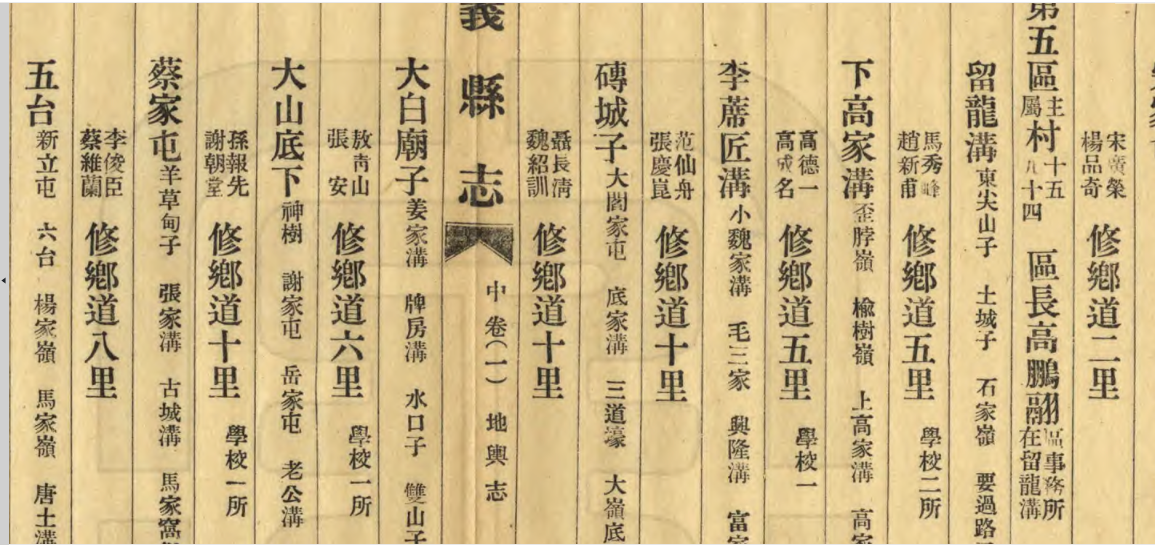 宋廣榮
楊品奇
修鄉道二里
第五區主村十五
屬村八十四
區長高鵬翮區事務所在留龍溝
留龍溝 東尖山子 土城子 石家嶺 要過路
馬秀峰
趙新甫
修鄉道五里 學校二所
下高家溝 歪脖嶺 楡樹嶺 上高家溝 高家
高德一
高成名
修鄉道五里 學校一
李蓆匠溝 小魏家溝 毛三家 興隆溝 富家
范仙舟
張慶崑
修鄉道十里
磚城子 大閻家屯 底家溝 三道壕 大嶺底
聶長清
魏紹訓
修鄉道十里
義縣志 中卷(一) 地輿志
大白廟子 姜家溝 牌房溝 水口子 雙山子
敖青山
張安
修鄉道六里 學校一所
大山底下 神樹 謝家屯 岳家屯 老公溝
孫報先
謝朝堂
修鄉道十里 學校一所
蔡家屯 羊草甸子 張家溝 古城溝 馬家窩
李俊臣
蔡維蘭
修鄉道八里
五台 新立屯 六台 楊家嶺 馬家嶺 唐土溝